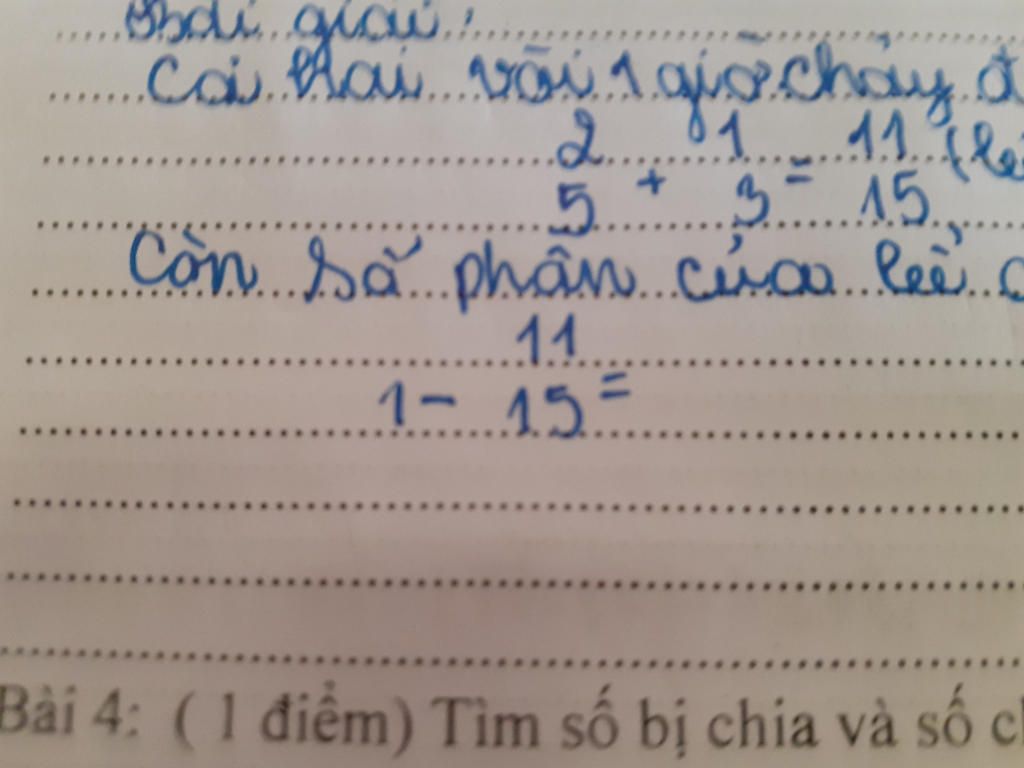 Bài giải:
Cả hai vòi 1 giờ chảy đ
2/5 + 1/3 = 11/15 (bể
Còn số phần của bể c
1 - 11/15 =
Bài 4: ( 1 điểm) Tìm số bị chia và số c